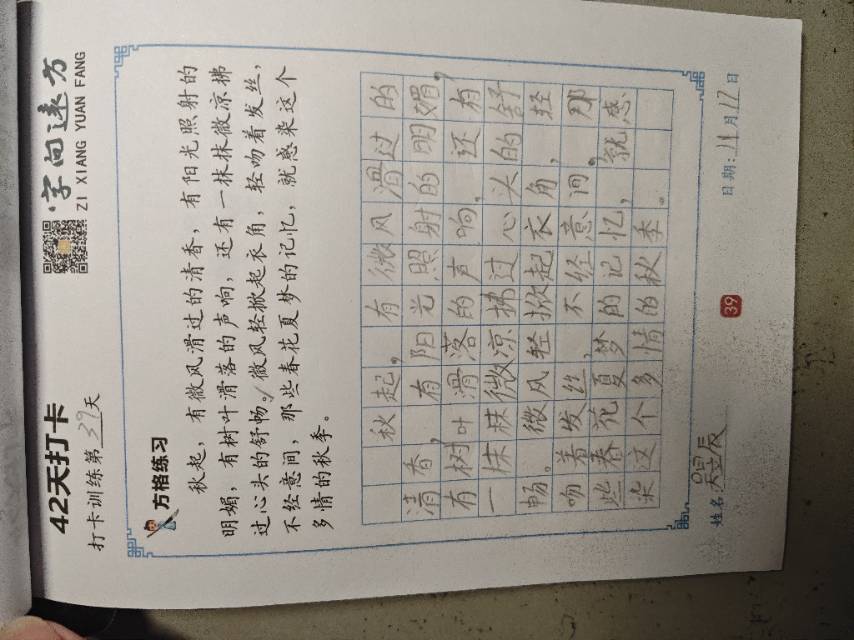 42天打卡
字向远方
ZI XIANG YUAN FANG
打卡训练第39天
方格练习
秋起，有微风滑过的清香，有阳光照射的
明媚，有树叶滑落的声响，还有一抹抹微凉拂
过心头的舒畅。微风轻掀起衣角，轻吻着发丝，
不经意间，那些春花夏梦的记忆，就感染这个
多情的秋季。
秋起，有微风滑过的
清香，有阳光照射的明媚，
有树叶滑落的声响，还有
一抹抹微凉拂过心头的舒
畅。微风轻掀起衣角，轻
吻着发丝，不经意间，那
些春花夏梦的记忆，就感
染这个多情的秋季。
姓名: 日期:11月17日
39